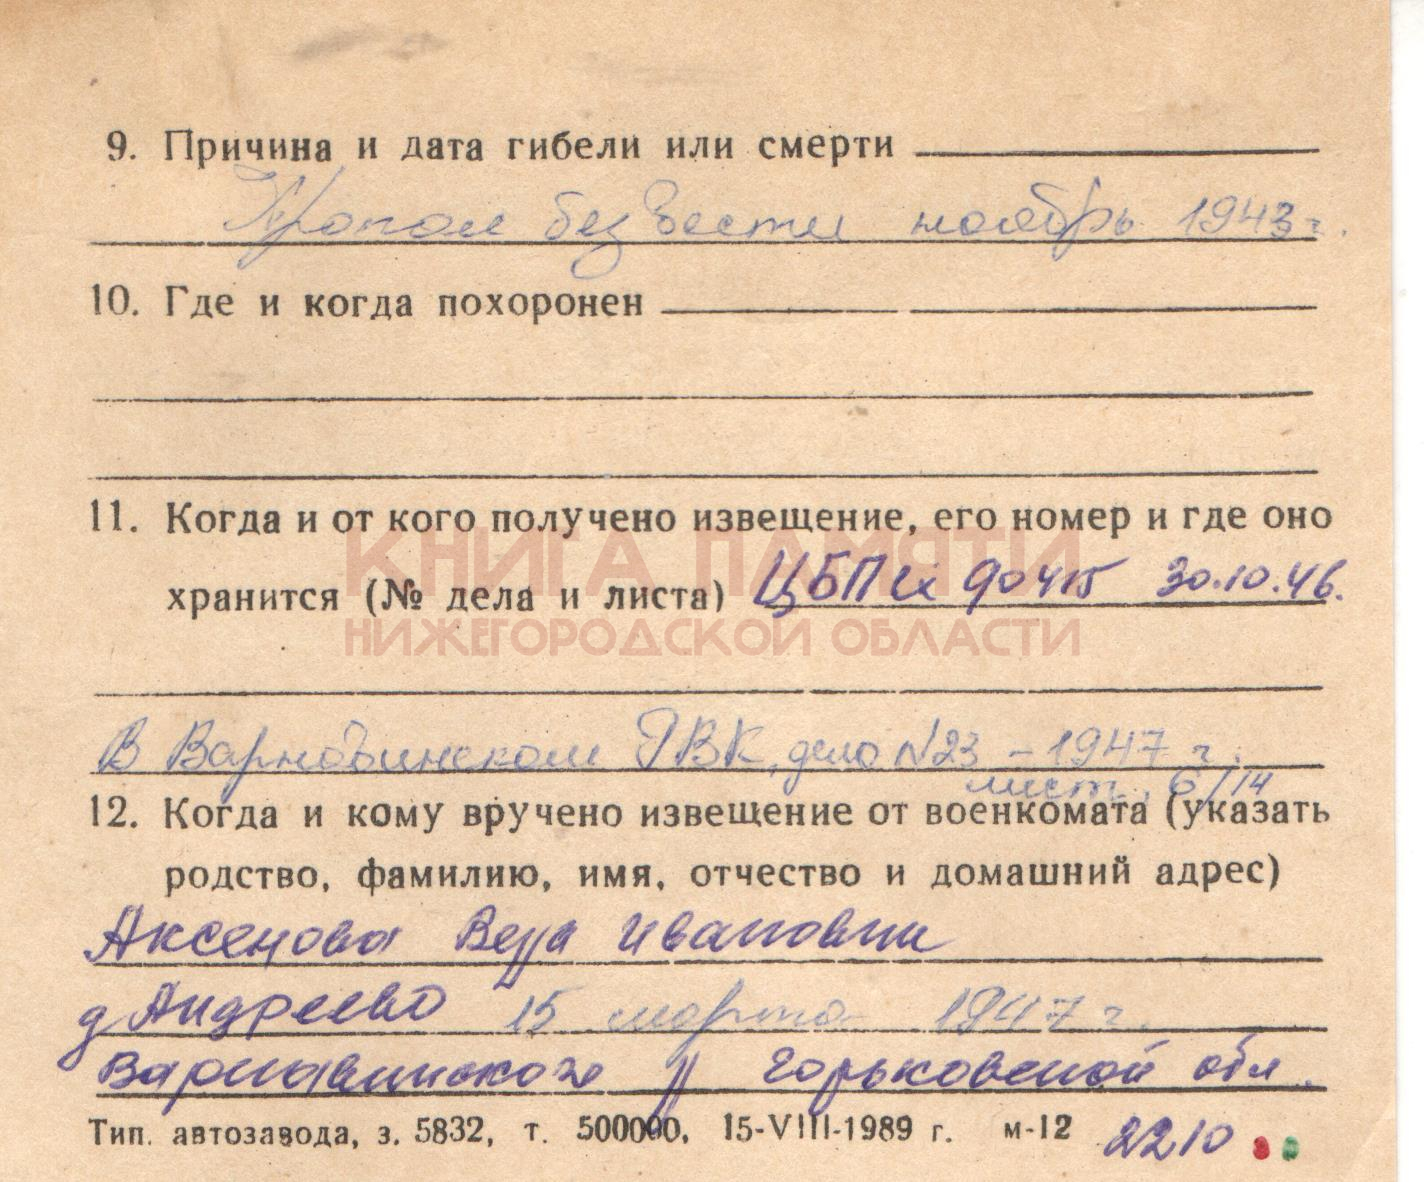 9. Причина и дата гибели или смерти
Пропал без вести ноябрь 1943 г.
10. Где и когда похоронен
11. Когда и от кого получено извещение, его номер и где оно
КНИГА ПАМЯТИ
хранится (№ дела и листа) ЦБПИ 90415 30.10.46.
НИЖЕГОРОДСКОЙ ОБЛАСТИ
В Варнавинском РВК, дело №23 - 1947 г.
лист. 6/14
12. Когда и кому вручено извещение от военкомата (указать
родство, фамилию, имя, отчество и домашний адрес)
Аксенова Вера Ивановна
д Андреево 15 марта 1947 г.
Варнавинского р Горьковской обл.
Тип. автозавода, з. 5832, т. 500000, 15-VIII-1989 г. м-12 2210